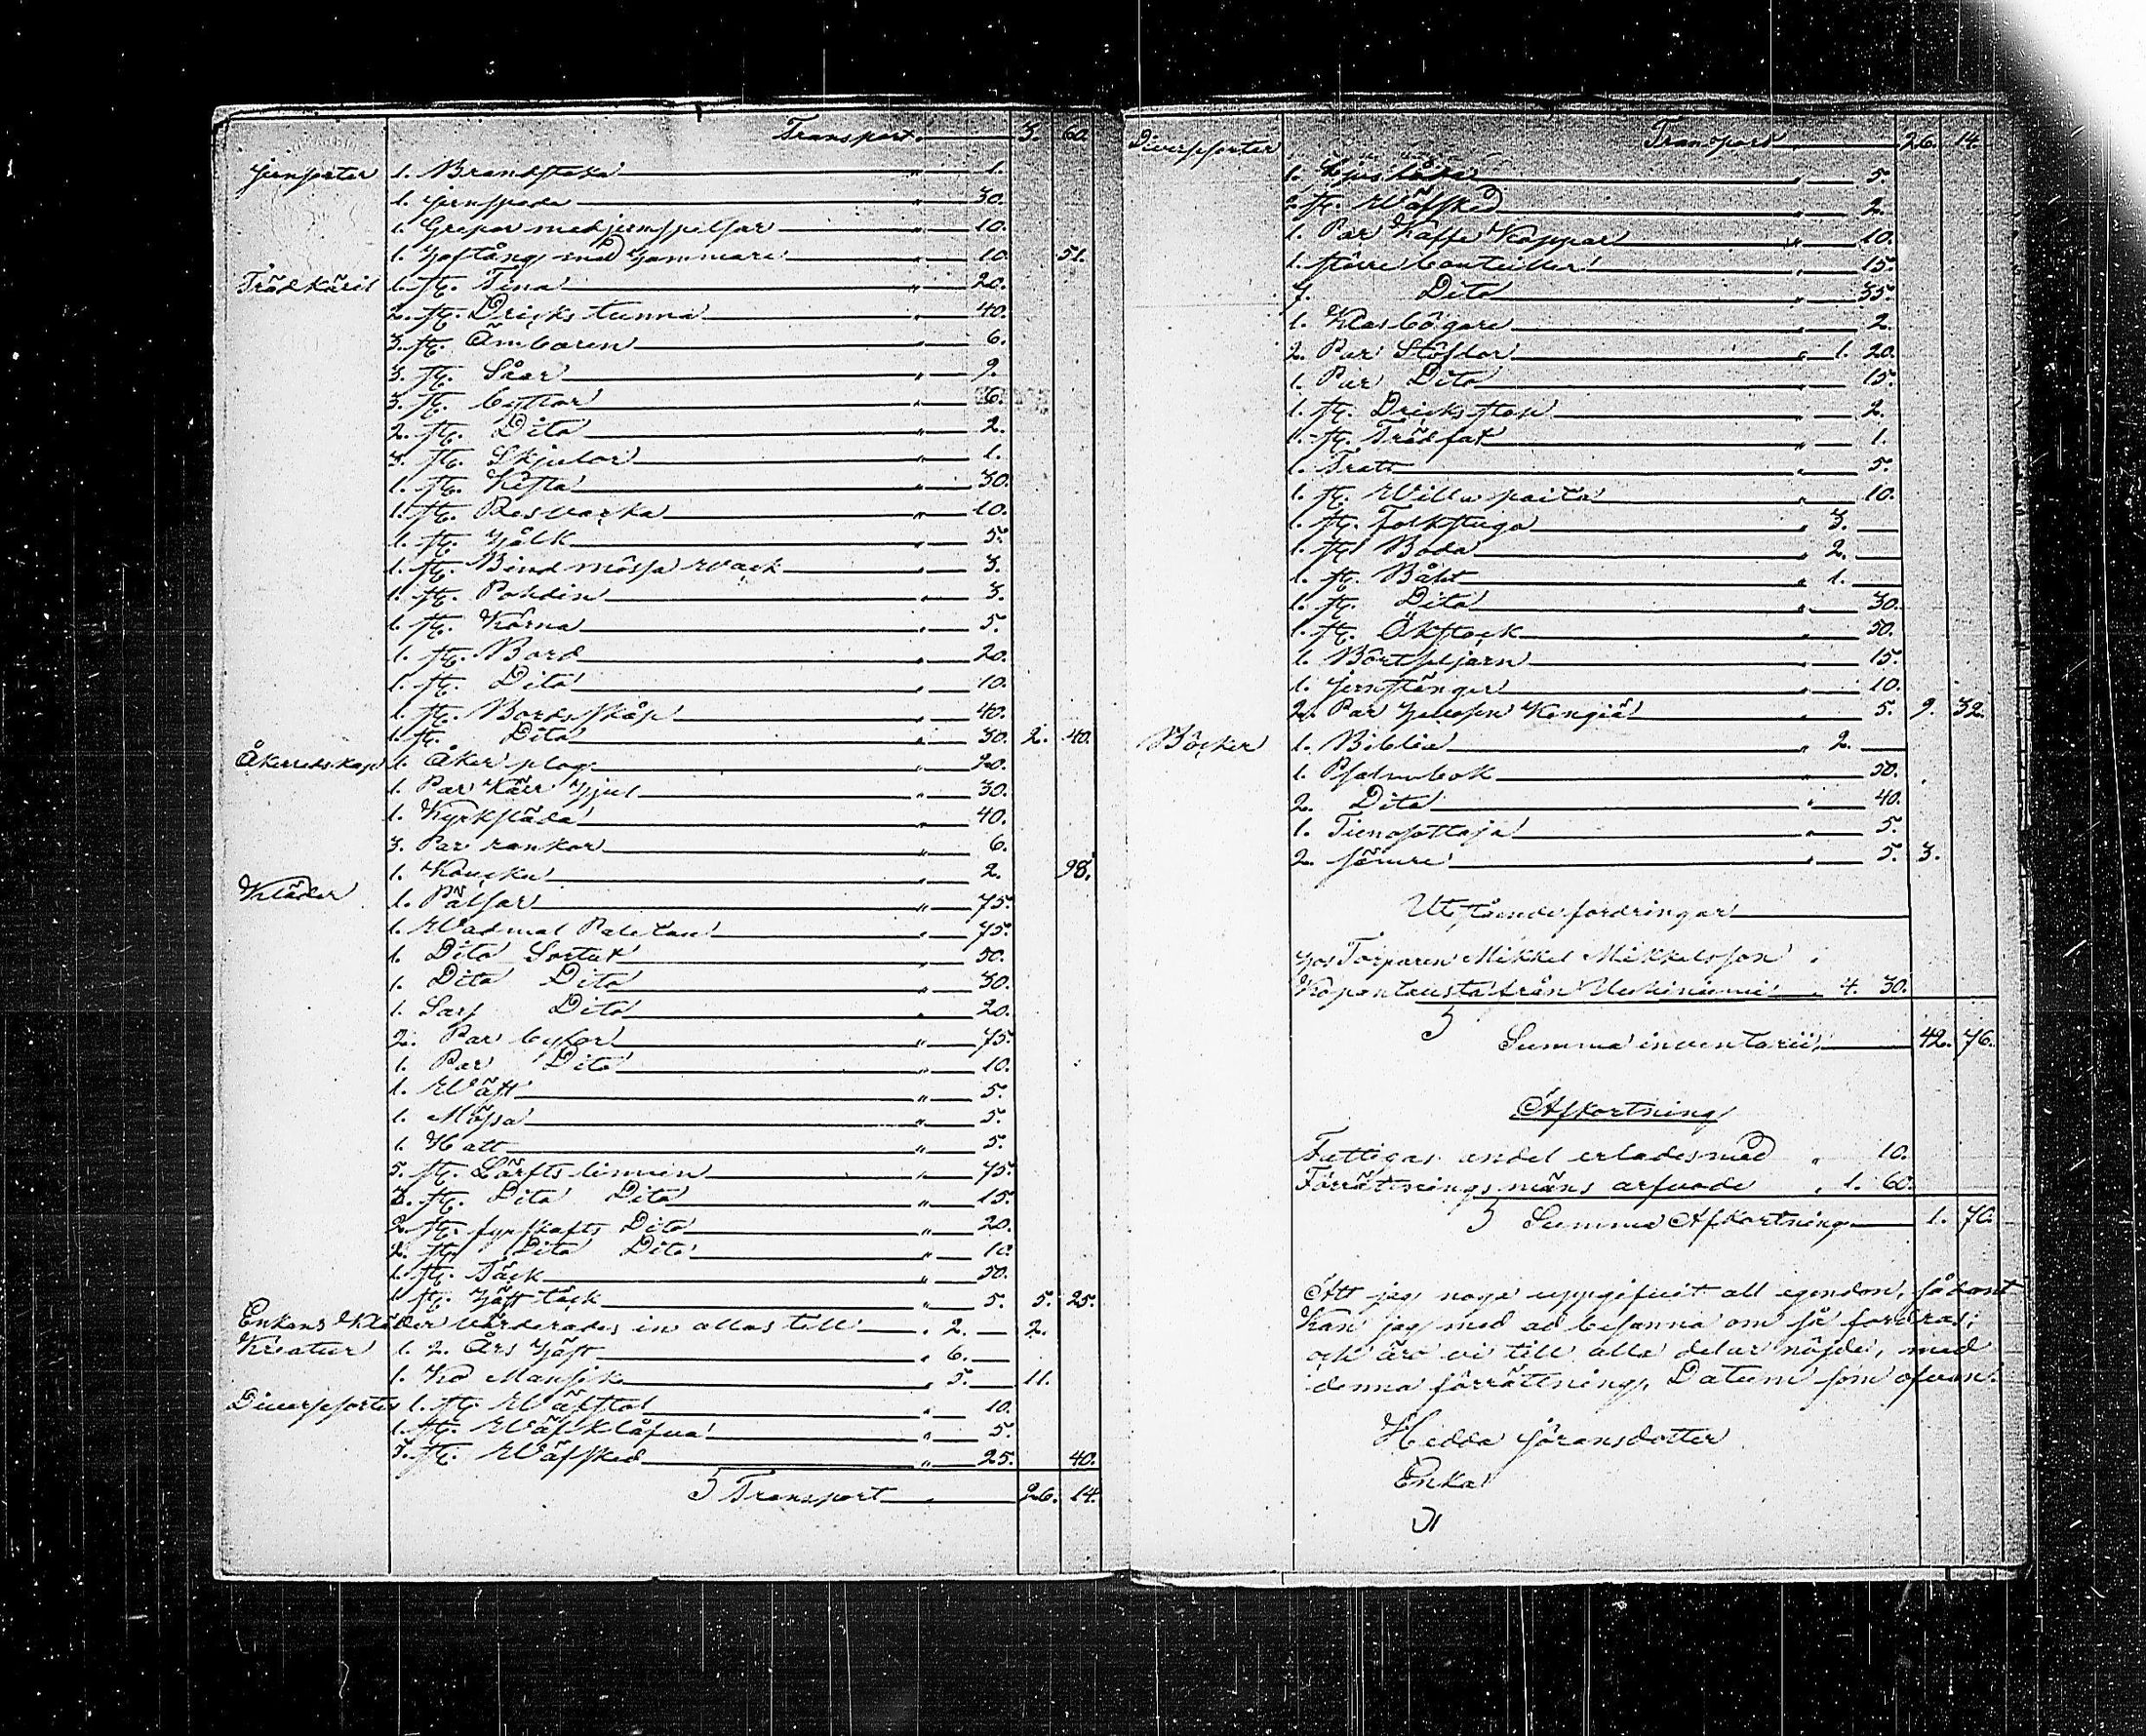 Transport. 3. 60.
Jernsaker 1. Brandstaka " 1.
1. jernspada " 30.
1. Grepar med jernspilfar 10.
1. Hoftång med Hammare " 10. 51.
Trädkäril 1. st. Tina " 20.
2. st. Dricks tunna " 40.
3. st. Ämbaren " 6.
3. st. Såar " 9.
3. st. byttor " 6.
2. st. Dito " 2.
3. st. Skjulor " 1.
1. st. Kista " 30.
1. st. Resvacka " 10.
1. st. Hålk " 5.
1. st. Bind mössa wack " 3.
1. st. Pohdin " 3.
1. st. Kärna " 5.
1. st. Bord " 20.
1. st. Dito " 10.
1. st. Bordsskåp " 40.
1. st. Dito " 30. 2. 40.
Åkerredskap 1. Åker plog " 20.
1. Par Kärr Hjul " 30.
1. Kyrksläda " 40.
3. Par rankor " 6.
1. " 2. 98.
Kläder 1. Pälsar " 75.
1. Wadmal Paletau " 75.
1. Dito Sortut " 50.
1. Dito Dito " 30.
1. Sars Dito " 20.
2. Par byxor " 75.
1. Par Dito " 10.
1. Wäst " 5.
1. Mössa " 5.
1. Hatt " 5.
5. st. Lärfts linnen " 75.
2. st. Dito Dito " 15.
2. st. fyrskafts Dito " 20.
2. st. Dito Dito " 10.
1. st. Täck " 50.
1. st. Häst täck " 5. 5. 25.
Enkans Kläder värderades in allas till " 2. 2.
Kreatur 1. 2. Års Häst " 6.
1. Ko Mansik " 5. 11.
Diversesorter 1. st. Wäfstol " 10.
1. st. Wäfsklåfva " 5.
7. st. Wäfsked " 25. 40.
Transport 26. 14.
Diversesorter Transport 26. 14.
1. " 5.
2. st. Wäfsked " 2.
1. Par Kaffe Koppar " 10.
1. större bouteiller " 15.
7. Dito " 35.
1. Klasbögare " 2.
2. Par Stöflor " 1. 20.
1. Par Dito " 15.
1. st. Dricks stop " 2.
1. st. Trädfat " 1.
1. Tratt " 5.
1. st. Willa paita " 10.
1. st. Folkstuga " 3.
1. st. Boda " 2.
1. st. Båt " 1.
1. st. Dito " 30.
1. st. Ökstock " 50.
1. " 15.
1. Jernstänger " 10.
2. Par Kengiä " 5. 9. 32.
Böcker 1. Biblia " 2.
1. Psalmbok " 50.
2. Dito " 40.
1. " 5.
2. " 5. 3.
Utestående fordringar
Hos Torparen Mikkel Mikkelsson
från " 4. 30.
Summa inventarii 42. 76.
Afkortning
Fattigas andel erlades med " 10.
Förrättnings mäns arfvode " 1. 60.
Summa Afkortning 1. 70.
Att jag noga uppgifvit all egendom, sådant
Kan jag med ed besanna om så fordras;
och äro vi till alla delar nöjde, med
denna förrättning, Datum som ofvan.
Hedda Göransdotter
Enka